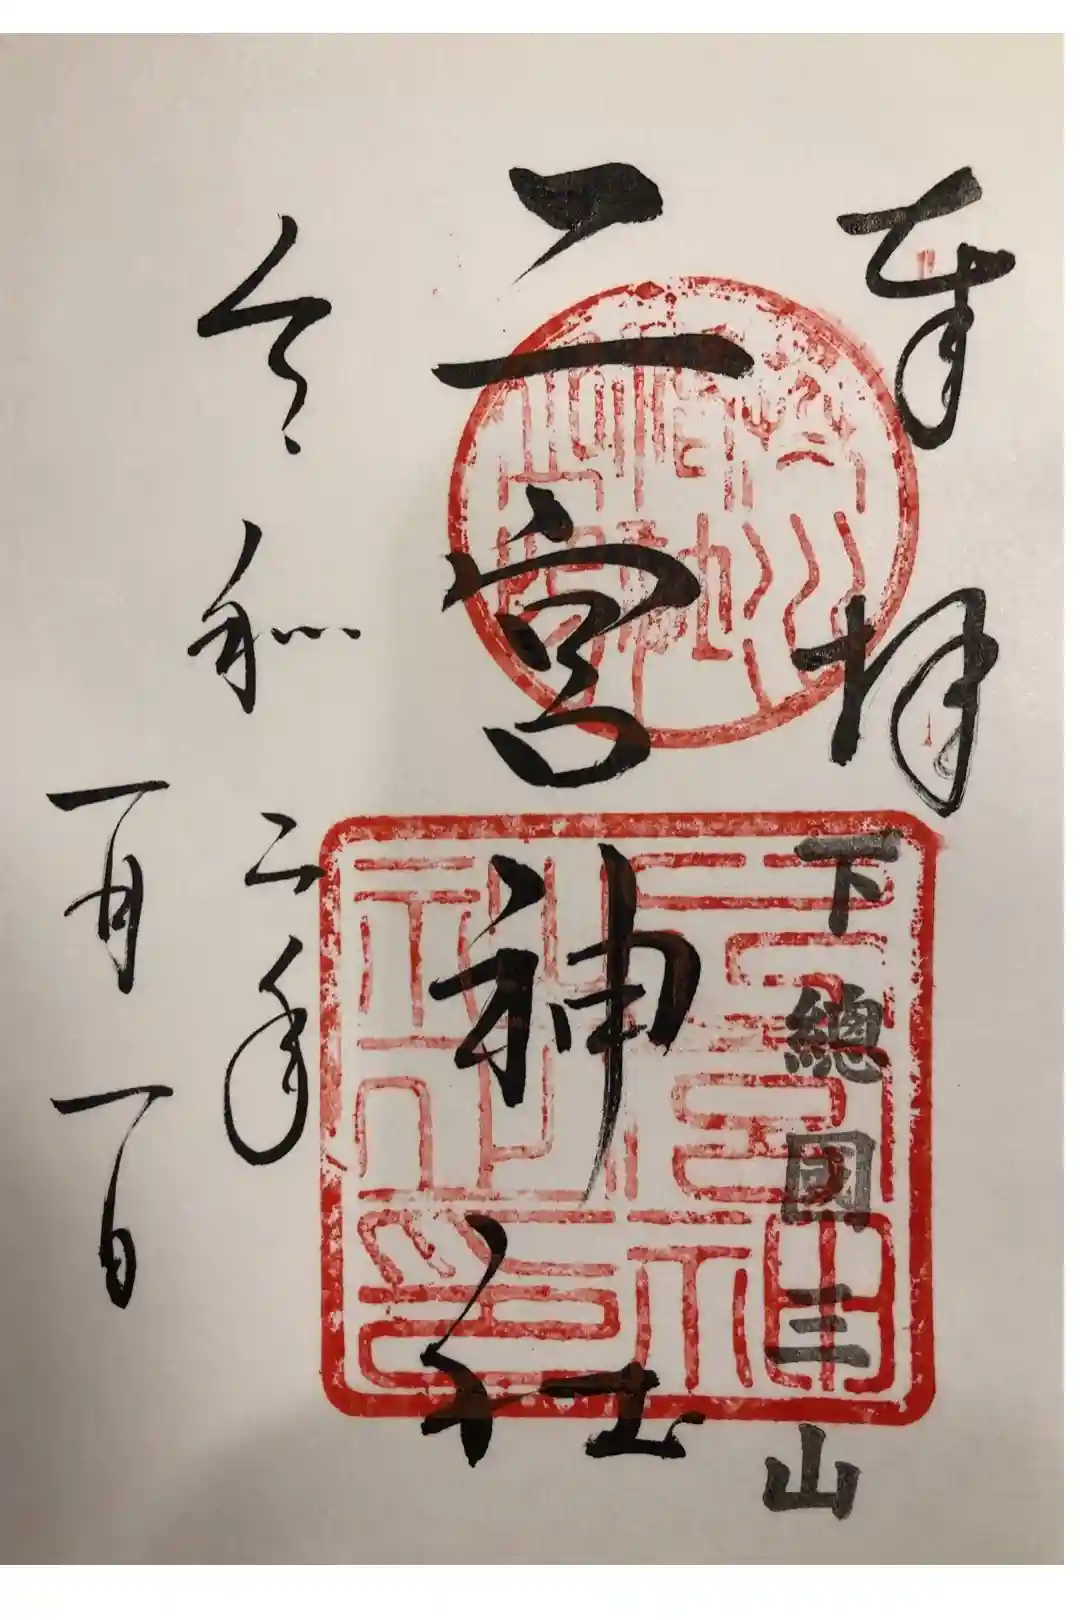 奉拝
下總國三山
二宮神社
令和二年
一月一日